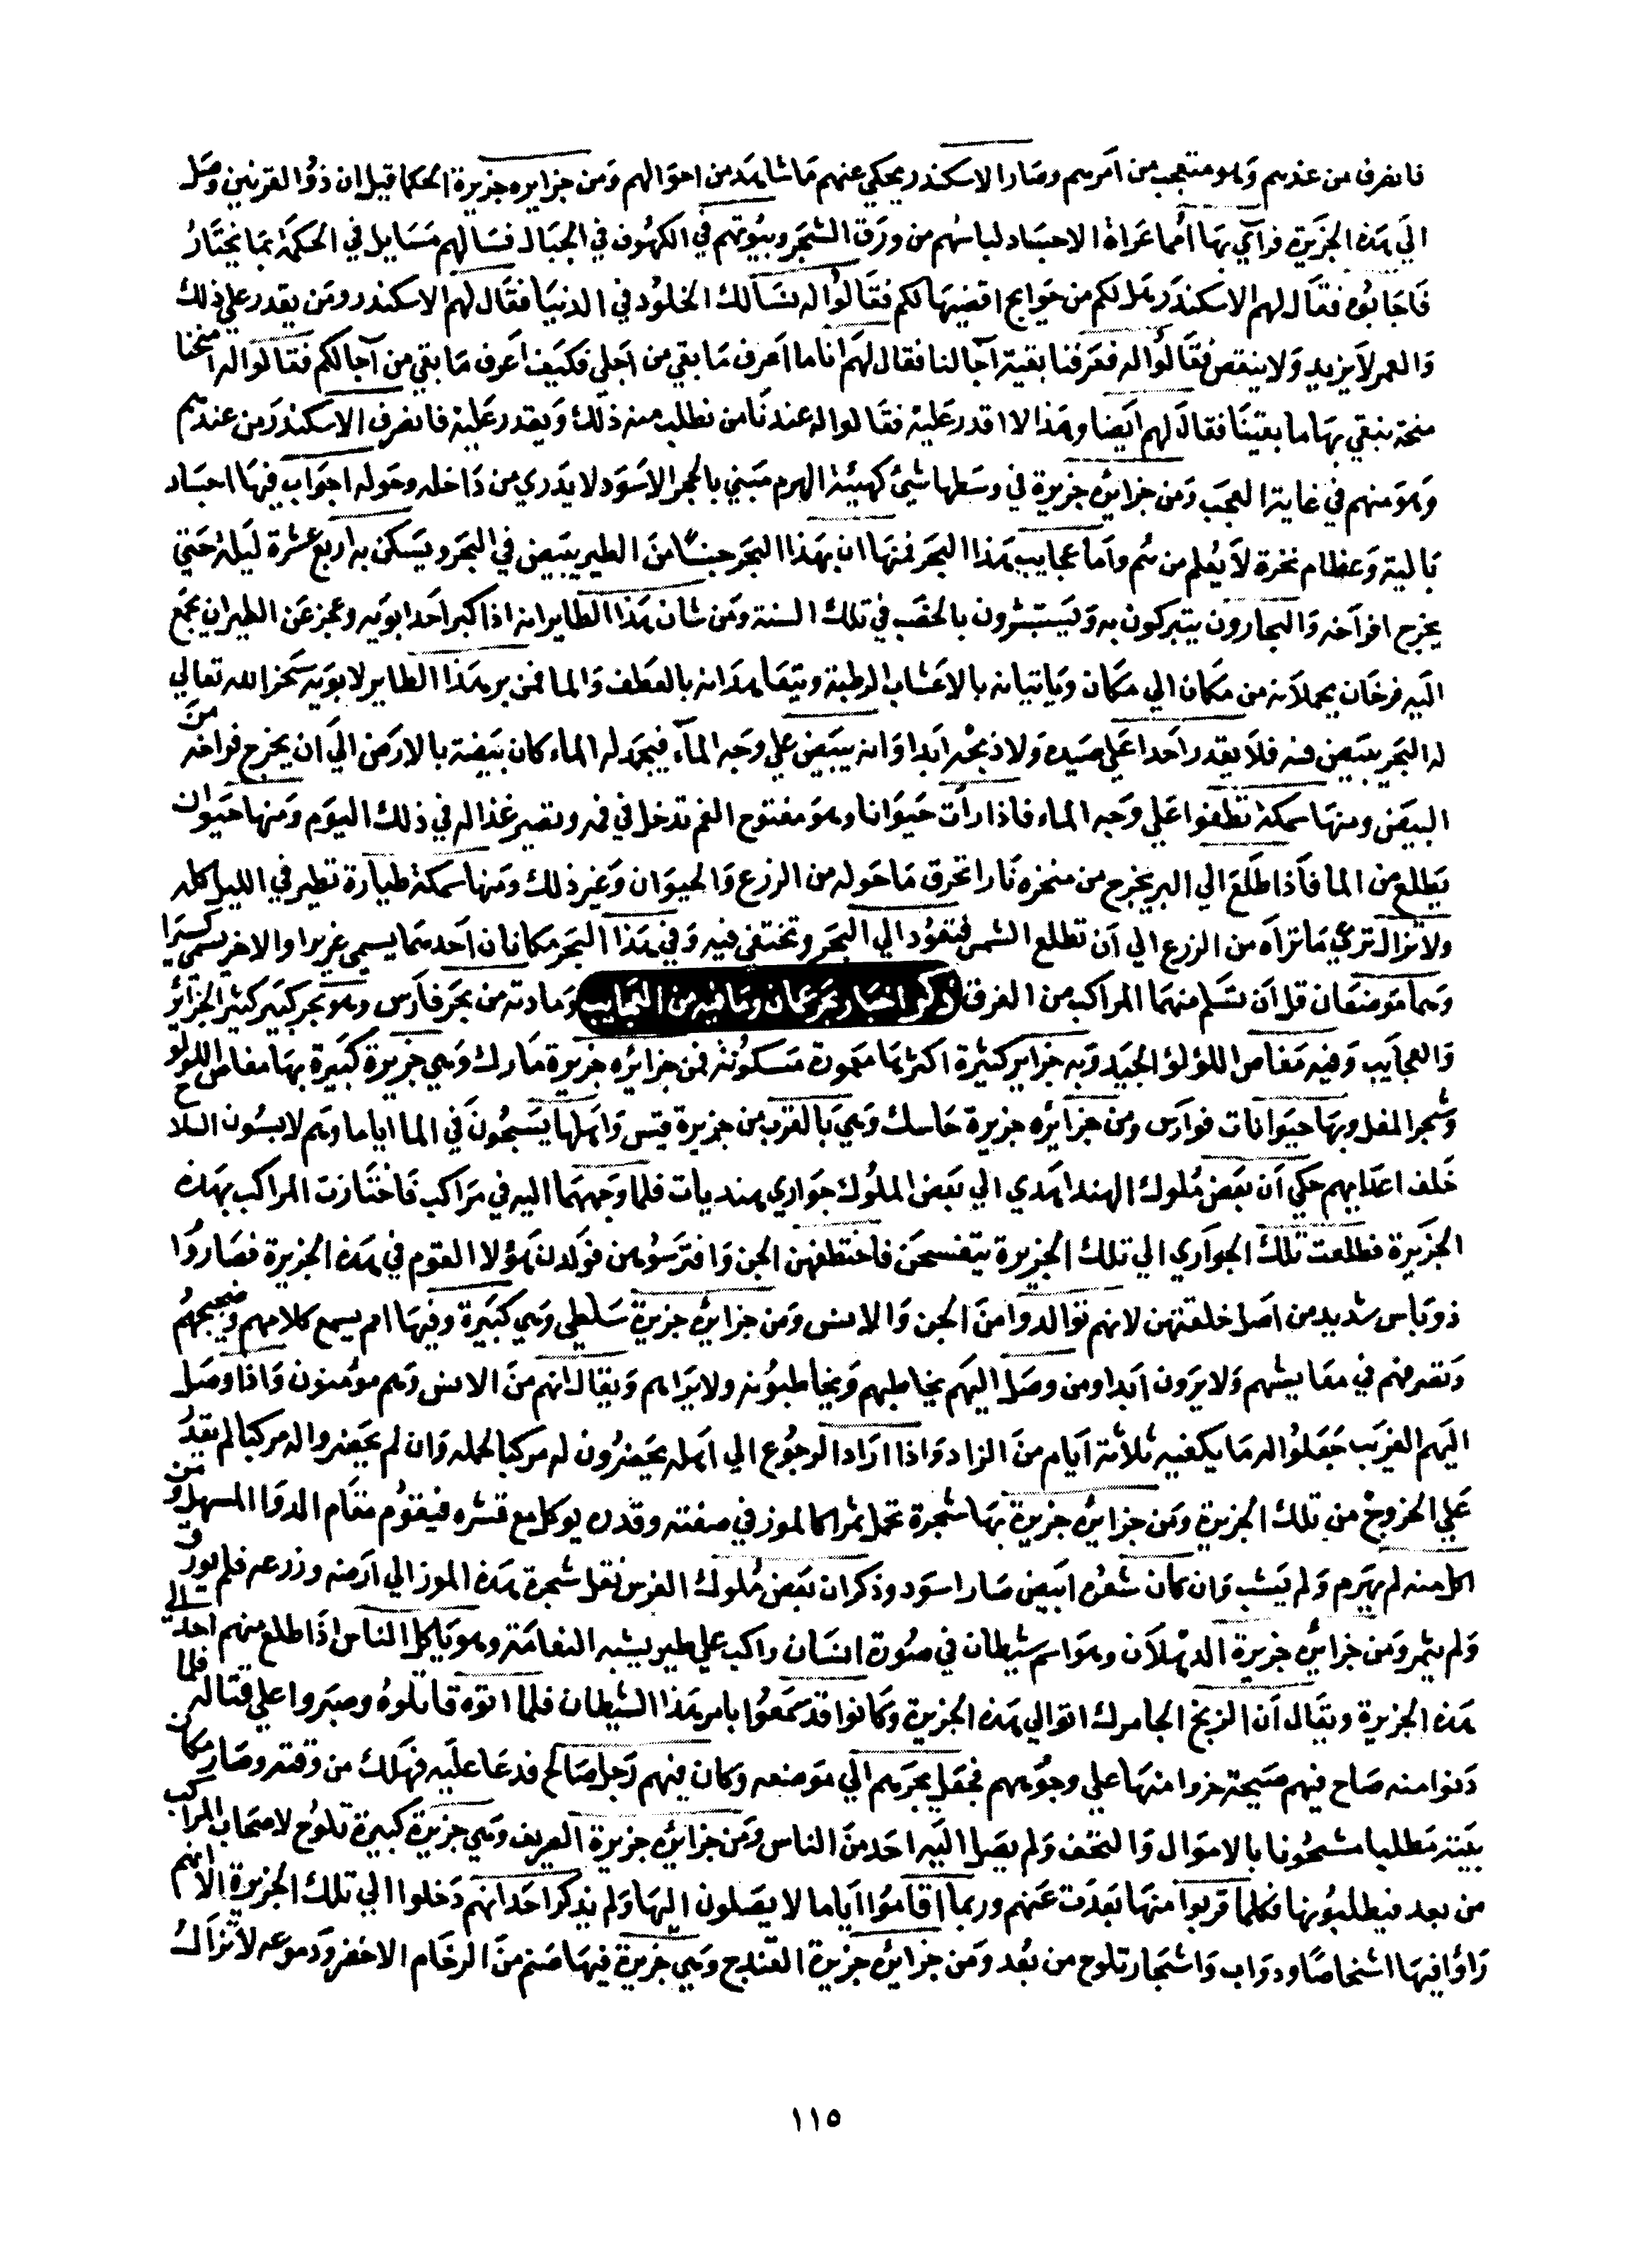 فانصرف من عندهم وهو متعجب من امرهم وصار الاسكندر يحكي عنهم ما شاهد من احوالهم ومن جزايره جزيرة الحكما قيل ان ذو القرنين وصل
الي هذه الجزيرة فرآي بها امما عراة الاجساد لباسهم من ورق الشجر وبيوتهم في الكهوف في الجبال فسالهم مسايل في الحكمة بما يختار
فاجابوه فقال لهم الاسكندر هل لكم من حوايج اقضيها لكم فقالوا له نسالك الخلود في الدنيا فقال لهم الاسكندر ومن يقدر علي ذلك
والعمر لا يزيد ولا ينقص فقالوا له فعرفنا بقية آجالنا فقال لهم انا ما اعرف ما بقي من اجلي فكيف اعرف ما بقي من آجالكم فقالوا له امنحنا
منحة نبقي بها ما بقينا فقال لهم ايضا وهذا لا اقدر عليه فقالوا له عندنا من نطلب منه ذلك ويقدر عليه فانصرف الاسكندر من عندهم
وهو منهم في غاية العجب ومن جزائره جزيرة في وسطها شئ كهيئة الهرم مبني بالحجر الاسود لا يدري من داخله وحوله اجواب فيها اجساد
بالية وعظام نخرة لا يعلم من هم واما عجايب هذا البحر فمنها ان بهذا البحر جنسا من الطير يبيض في البحر ويسكن به اربع عشرة ليلة حتي
يخرج افراخه والبحارون يتبركون به ويستبشرون بالخصب في تلك السنة ومن شان هذا الطاير انه اذا كبر احد ابويه وعجز عن الطيران يجمع
اليه فرخان يحملانه من مكان الي مكان وياتيانه بالاعشاب الرطبة ويتعاهدانه بالعطف والما فمن بر هذا الطاير لابويه سخر الله تعالي
له البحر يبيض فيه فلا يقدر احدا علي صيده ولا ذبحه ابدا وانه يبيض علي وجه المآء فيجمد له الماء كان بيضة بالارض الي ان يخرج فراخه من
البيض ومنها سمكة تطفوا علي وجه الماء فاذا رات حيوانا وهو مفتوح الفم تدخل في فمه وتصير غذا له في ذلك اليوم ومنها حيوان
يطلع من الما فاذا طلع الي البر يخرج من منخره نارا تحرق ما حوله من الزرع والحيوان وغير ذلك ومنها سمكة طيارة تطير في الليل كله
ولا تزال ترعي ما تراه من الزرع الي ان تطلع الشمس فتعود الي البحر وتختفي فيه وفي هذا البحر مكانان احدهما يسمي غريرا والاخر يسمي كسيرا
وهما موضعان قل ان تسلم منهما المراكب من الغرق ذكر اخبار بحر عمان وما فيه من العجايب ومادته من بحر فارس وهو بحر كبير كثير الجزائر
والعجايب وفيه مغاص اللؤلؤ الجيد وبه جزاير كثيرة اكثرها معمورة مسكونة فمن جزائره جزيرة مارك وهي جزيرة كبيرة بها مغاص اللولو
وشجر المقل وبها حيوانات فوارس ومن جزائره جزيرة حاسك وهي بالقرب من جزيرة قيس واهلها يسبحون في الما اياما وهم لابسون السلاح
خلف اعدايهم حكي ان بعض ملوك الهند اهدي الي بعض الملوك جواري هنديات فلما وجههما اليه في مراكب فاختازت المراكب بهذه
الجزيرة فطلعت تلك الجواري الي تلك الجزيرة يتفسحن فاختطفهن الجن وافترسوهن فولدن هؤلا القوم في هذه الجزيرة فصاروا
ذو باس شديد من اصل خلقتهن لانهم توالدوا من الجن والانس ومن جزائره جزيرة سلطي وهي كبيرة وفيها امم يسمع كلامهم وضجيجهم
وتصرفهم في معايشهم ولا يرون ابدا ومن وصل اليهم يخاطبهم ويخاطبونه ولا يراهم ويقال انهم من الانس وهم مؤمنون واذا وصل
اليهم الغريب جعلوا له ما يكفيه ثلاثة ايام من الزاد واذا اراد الرجوع الي اهله يحضرون له مركبا لحمله وان لم يحضروا له مركبا لم يقدر
علي الخروج من تلك الجزيرة ومن جزائره جزيرة بها شجرة تحمل ثمرا كالموز في صفته وقدره يوكل مع قشره فيقوم مقام الدوا المسهل ومن
اكل منه لم يهرم ولم يشب وان كان شعره ابيض صار اسود وذكر ان بعض ملوك الفرس نقل شجرة هذه الموز الي ارضه وزرعه فلم يورق
ولم يثمر ومن جزائره جزيرة الدهلان وهو اسم شيطان في صورة انسان راكب علي طير يشبه النعامة وهو ياكل الناس اذا طلع منهم احد الي
هذه الجزيرة ويقال ان الزنج الجامرك اتوا الي هذه الجزيرة وكانوا قد سمعوا بامر هذا الشيطان فلما اتوه قاتلوه وصبروا علي قتاله فلما
دنوا منه صاح فيهم صيحة خروا منها علي وجوههم فجعل يجرهم الي موضعه وكان فيهم رجل صالح فدعا عليه فهلك من وقته وصار مكان
بيته مطلبا مشحونا بالاموال والتحف ولم يصل اليه احد من الناس ومن جزائره جزيرة العريف وهي جزيرة كبيرة تلوح لاصحاب المراكب
من بعد فيطلبونها فكلما قربوا منها بعدت عنهم وربما اقاموا اياما لا يصلون اليها ولم يذكر احد انهم دخلوا الي تلك الجزيرة الا انهم
راؤا فيها اشخاصا ودواب واشجار تلوح من بعد ومن جزائره جزيرة القندج وهي جزيرة فيها صنم من الرخام الاخضر ودموعه لا تزال
١١٥